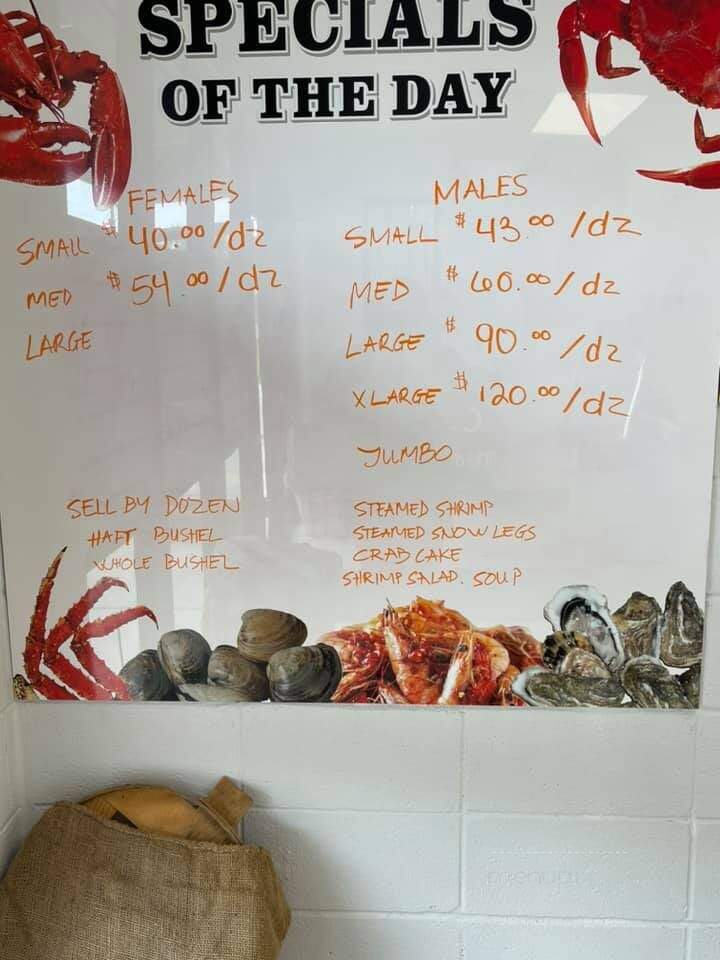 SPECIALS
OF THE DAY
FEMALES
SMALL $40.00/dz
MED $54.00/dz
LARGE
MALES
SMALL $43.00/dz
MED $60.00/dz
LARGE $90.00/dz
XLARGE $120.00/dz
JUMBO
SELL BY DOZEN
HAFT BUSHEL
WHOLE BUSHEL
STEAMED SHRIMP
STEAMED SNOW LEGS
CRAB CAKE
SHRIMP SALAD. SOUP